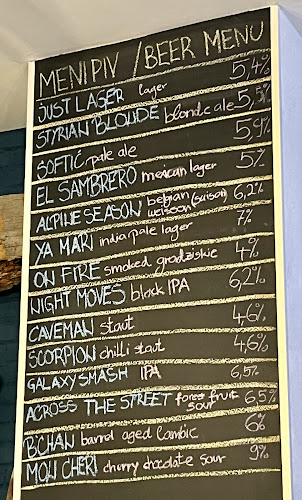 MENI PIV / BEER MENU
JUST LAGER lager 5,4%
STYRIAN BLONDE blonde ale 5,5%
SOFTIĆ pale ale 5,9%
EL SAMBRERO mexican lager 5%
ALPINE SEASON belgian weisson (saison) 6,2%
YA MARI india pale lager 7%
ON FIRE smoked grodziskie 4%
NIGHT MOVES black IPA 6,2%
CAVEMAN staut 4,6%
SCORPION chilli staut 4,6%
GALAXY SMASH IPA 6,5%
ACROSS THE STREET forest fruit sour 6,5%
B'CHAN barrel aged lambic 6%
MON CHERI cherry chocolate sour 9%